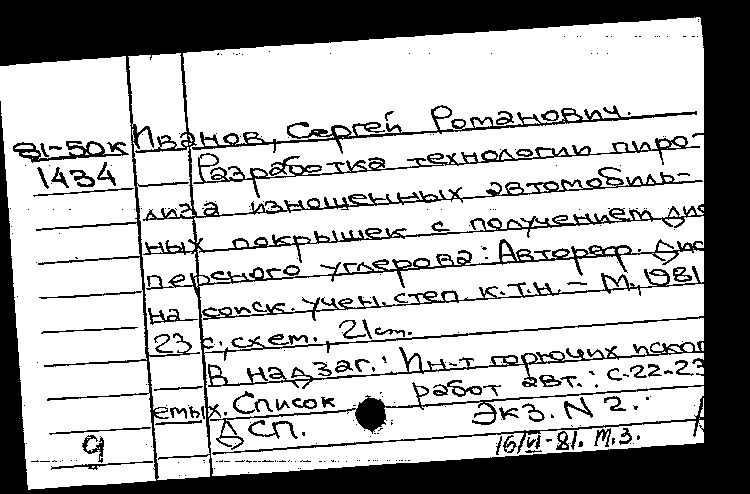 81-50к Иванов, Сергей Романович.
1434 Разработка технологии пиро-
лиза изношенных автомобиль-
ных покрышек с получением дис
персного углерода: Автореф. Дис
на соиск. учен. степ. к.т.н. - М., 1981
23 с., схем., 21 см.
В надзаг.: Ин-т горючих ископ
емых. Список работ авт.: с. 22-23
ДСП. Экз. N 2.
9 16/VI-81. т.з.